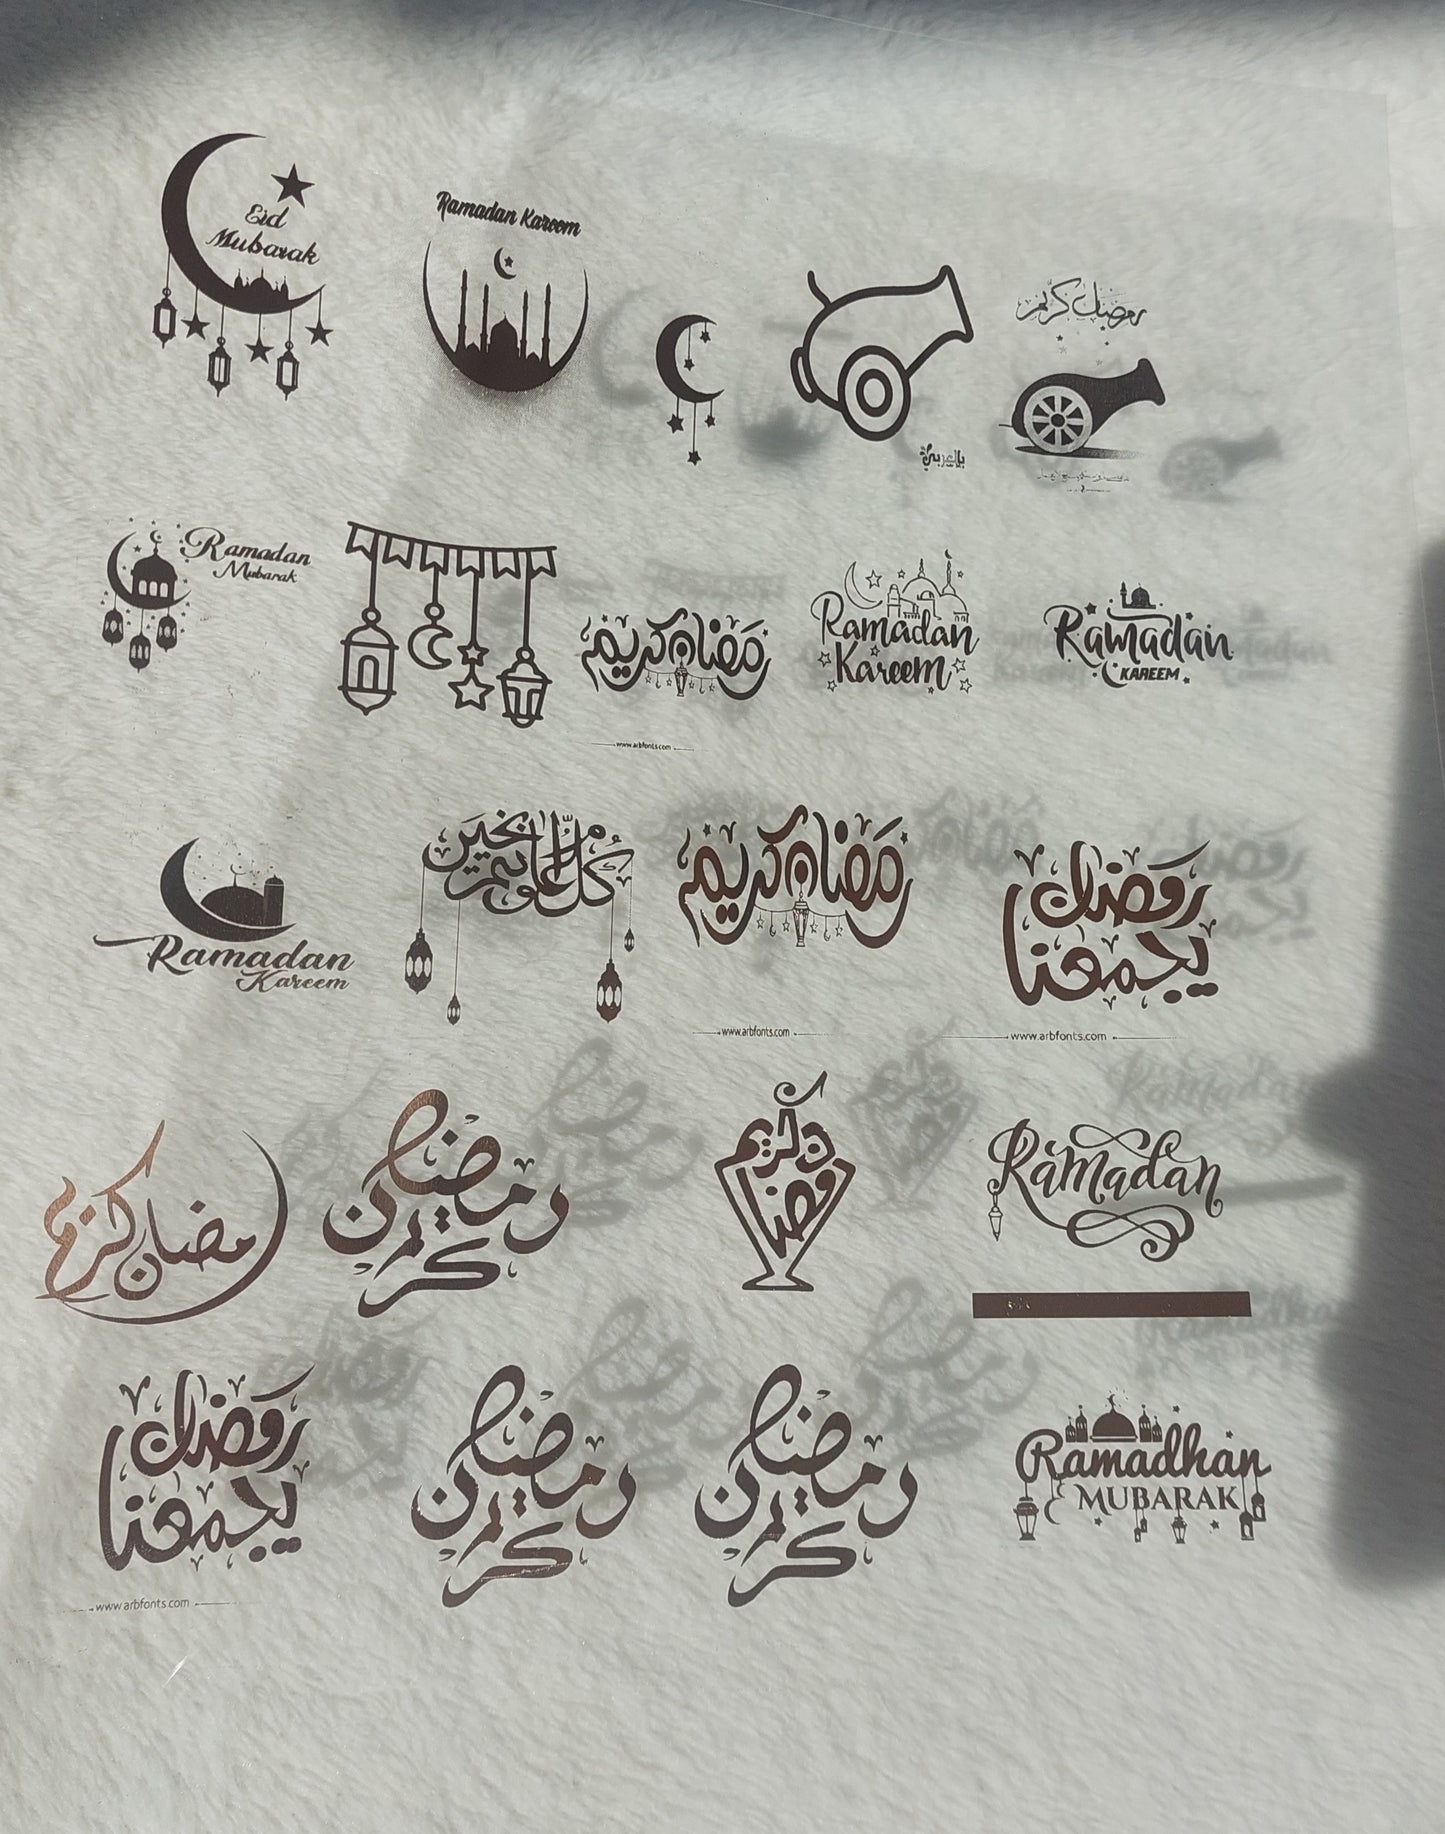 Eid
Mubarak
Ramadan Kareem
بالعربي
رمضان كريم
Ramadan
Mubarak
رمضان كريم
www.arbfonts.com
Ramadan
Kareem
Ramadan
KAREEM
Ramadan
Kareem
كل عام وأنتم بخير
رمضان كريم
www.arbfonts.com
رمضان
يجمعنا
www.arbfonts.com
رمضان كريم
رمضان
كريم
رمضان كريم
Ramadan
رمضان
يجمعنا
www.arbfonts.com
رمضان
كريم
رمضان
كريم
Ramadhan
MUBARAK